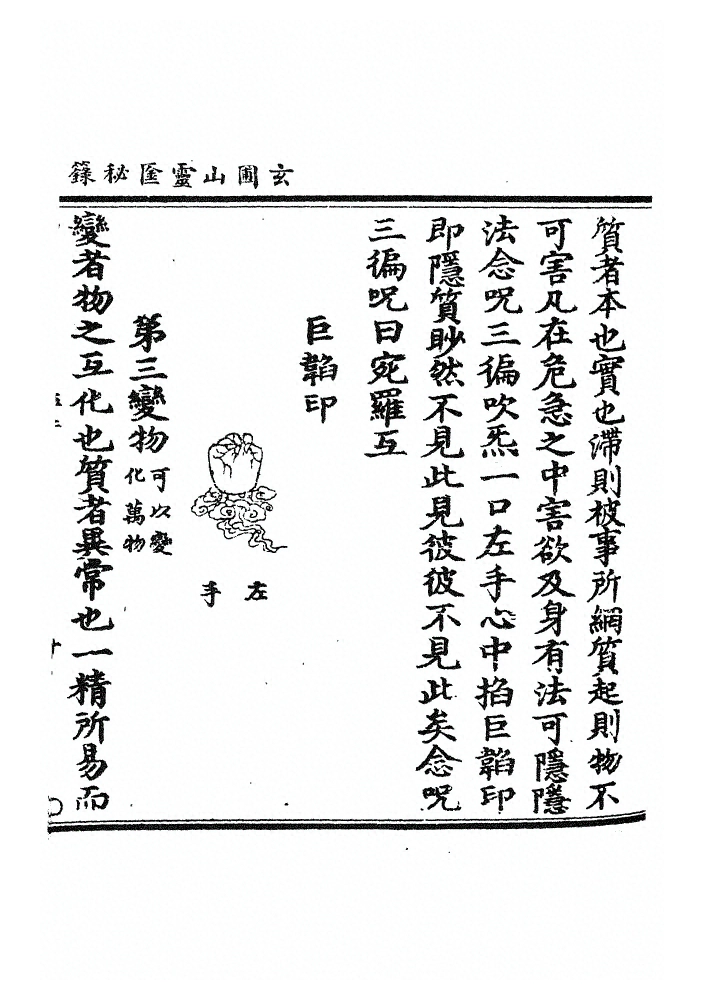 玄圃山靈匧秘籙
質者本也實也滯則被事所網質起則物不
可害凡在危急之中害欲及身有法可隱隱
法念呪三徧吹炁一口左手心中掐巨韜印
即隱質眇然不見此見彼彼不見此矣念呪
三徧呪曰宛羅互
巨韜印
左手
第三變物可以變化萬物
變者物之互化也質者異常也一精所易而